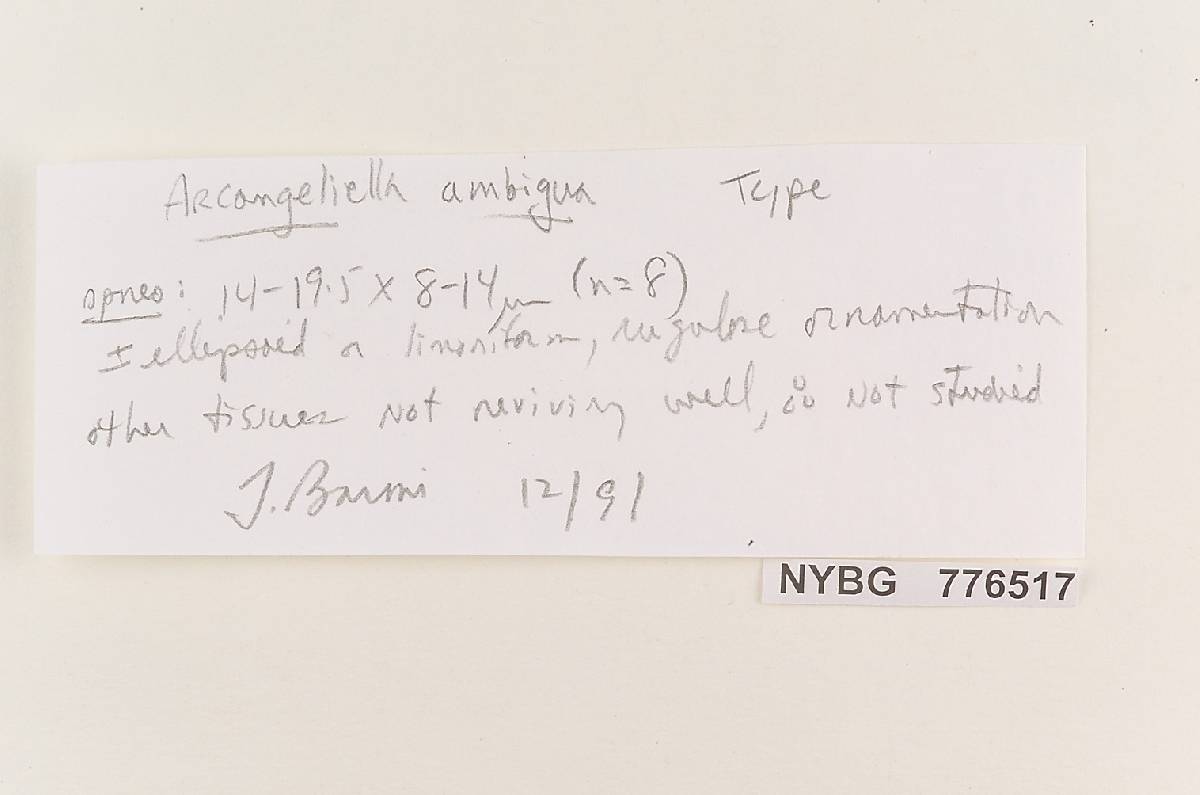 Arcangeliella ambigua Type
spores: 14-19.5 x 8-14 µm (n=8)
± ellipsoid or limoniform, rugulose ornamentation
other tissues not reviving well, ∴ not studied
J. 12/91
NYBG 776517